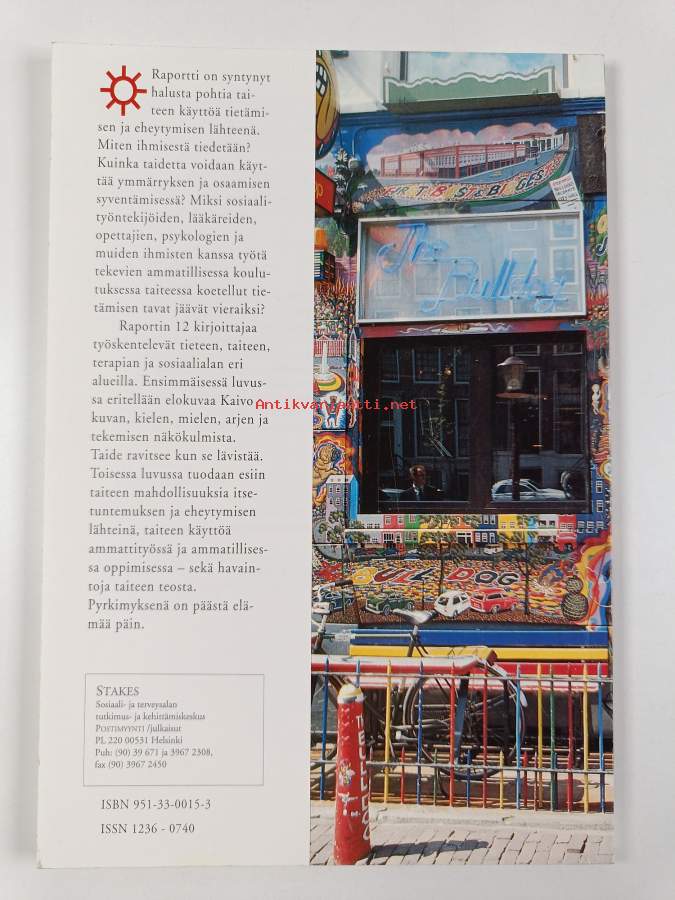 Raportti on syntynyt
halusta pohtia tai-
teen käyttöä tietämi-
sen ja eheytymisen lähteenä.
Miten ihmisestä tiedetään?
Kuinka taidetta voidaan käyt-
tää ymmärryksen ja osaamisen
syventämisessä? Miksi sosiaali-
työntekijöiden, lääkäreiden,
opettajien, psykologien ja
muiden ihmisten kanssa työtä
tekevien ammatillisessa koulu-
tuksessa taiteessa koetellut tie-
tämisen tavat jäävät vieraiksi?
Raportin 12 kirjoittajaa
työskentelevät tieteen, taiteen,
terapian ja sosiaalialan eri
alueilla. Ensimmäisessä luvus-
sa eritellään elokuvaa Kaivo
kuvan, kielen, mielen, arjen ja
tekemisen näkökulmista.
Taide ravitsee kun se lävistää.
Toisessa luvussa tuodaan esiin
taiteen mahdollisuuksia itse-
tuntemuksen ja eheytymisen
lähteinä, taiteen käyttöä
ammattityössä ja ammatillises-
sa oppimisessa – sekä havain-
toja taiteen teosta.
Pyrkimyksenä on päästä elä-
mää päin.
STAKES
Sosiaali- ja terveysalan
tutkimus- ja kehittämiskeskus
POSTIMYYNTI /julkaisut
PL 220 00531 Helsinki
Puh: (90) 39 671 ja 3967 2308,
fax (90) 3967 2450
ISBN 951-33-0015-3
ISSN 1236 - 0740
FIRST BEST & BIGGEST
The
Bulldog
BULLDOG
Antikvariaatti.net